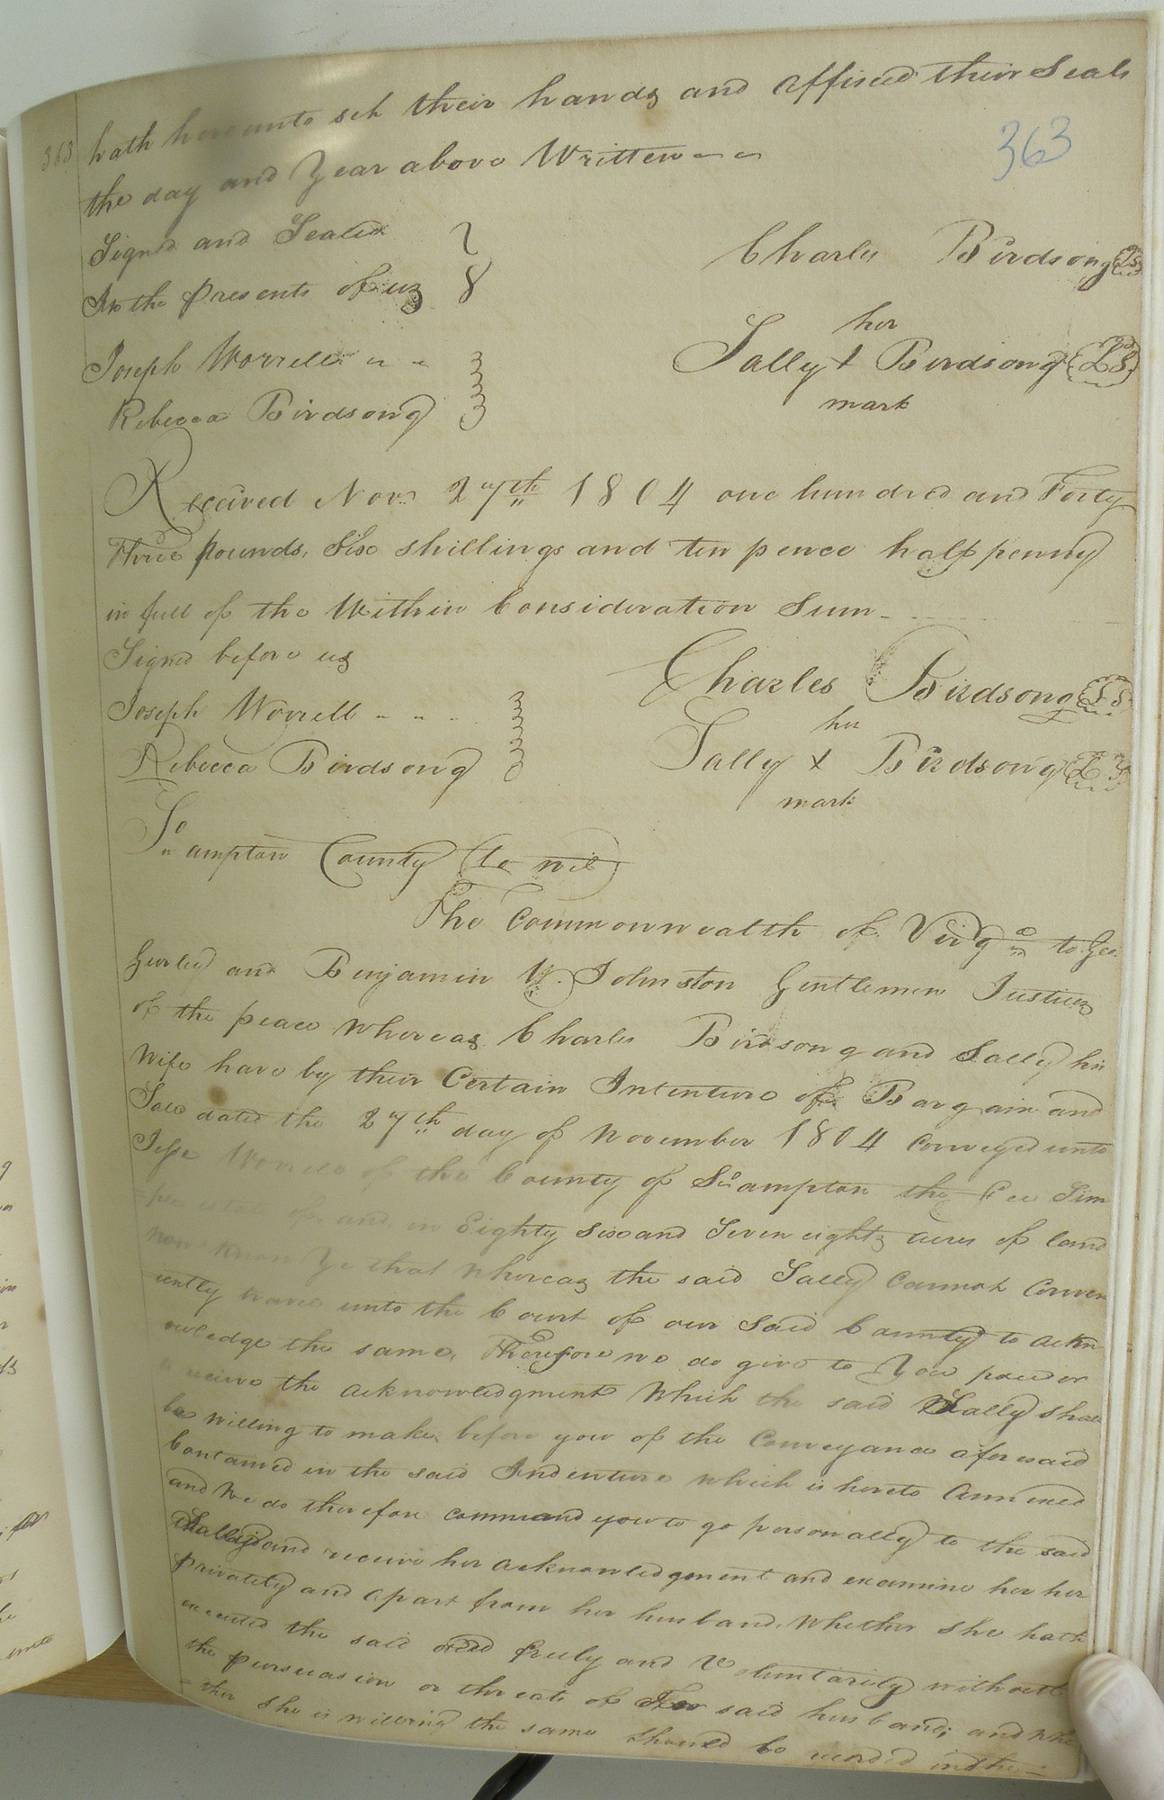 363 hath hereunto set their hands and affixed their Seals
363
the day and Year above Written
Signed and Sealed
In the presents of us
Charles Birdsong LS
her
Sally + Birdsong LS
mark
Joseph Worrell
Rebecca Birdsong
Received Nov. 27th 1804 one hundred and Forty
Three pounds, Six shillings and ten pence half penny
in full of the Within Consideration Sum
Signed before us
Charles Birdsong LS
Joseph Worrell
her
Rebecca Birdsong
Sally x Birdsong LS
mark
So ampton County (to wit)
The Commonwealth of Virga to Geo.
Gurley and Benjamin W. Johnston Gentlemen Justices
of the peace Whereas Charles Birdsong and Sally his
Wife have by their Certain Intenture of Bargain and
Sale dated the 27th day of November 1804 Conveyed unto
Jesse Worrell of the County of Soampton the Fee Sim
ple estate of and in Eighty Six and Seven eights acres of land
now Know Ye that Whereas the said Sally Cannot Conven
iently travel unto the Court of our Said County to ackn
owledge the same, Therefore we do give to You power
receive the acknowledgment Which the said Sally shall
be willing to make before you of the Conveyance aforesaid
Contained in the said Indenture which is hereto Annexed
and We do therefore command you to go personally to the said
Sally and receive her acknowledgement and examine her her
privately and apart from her husband, Whether She hath
executed the said deed freely and Voluntarily without
the persuasion or threats of her said husband; and Whe
ther She is willing the same Should be recorded in the